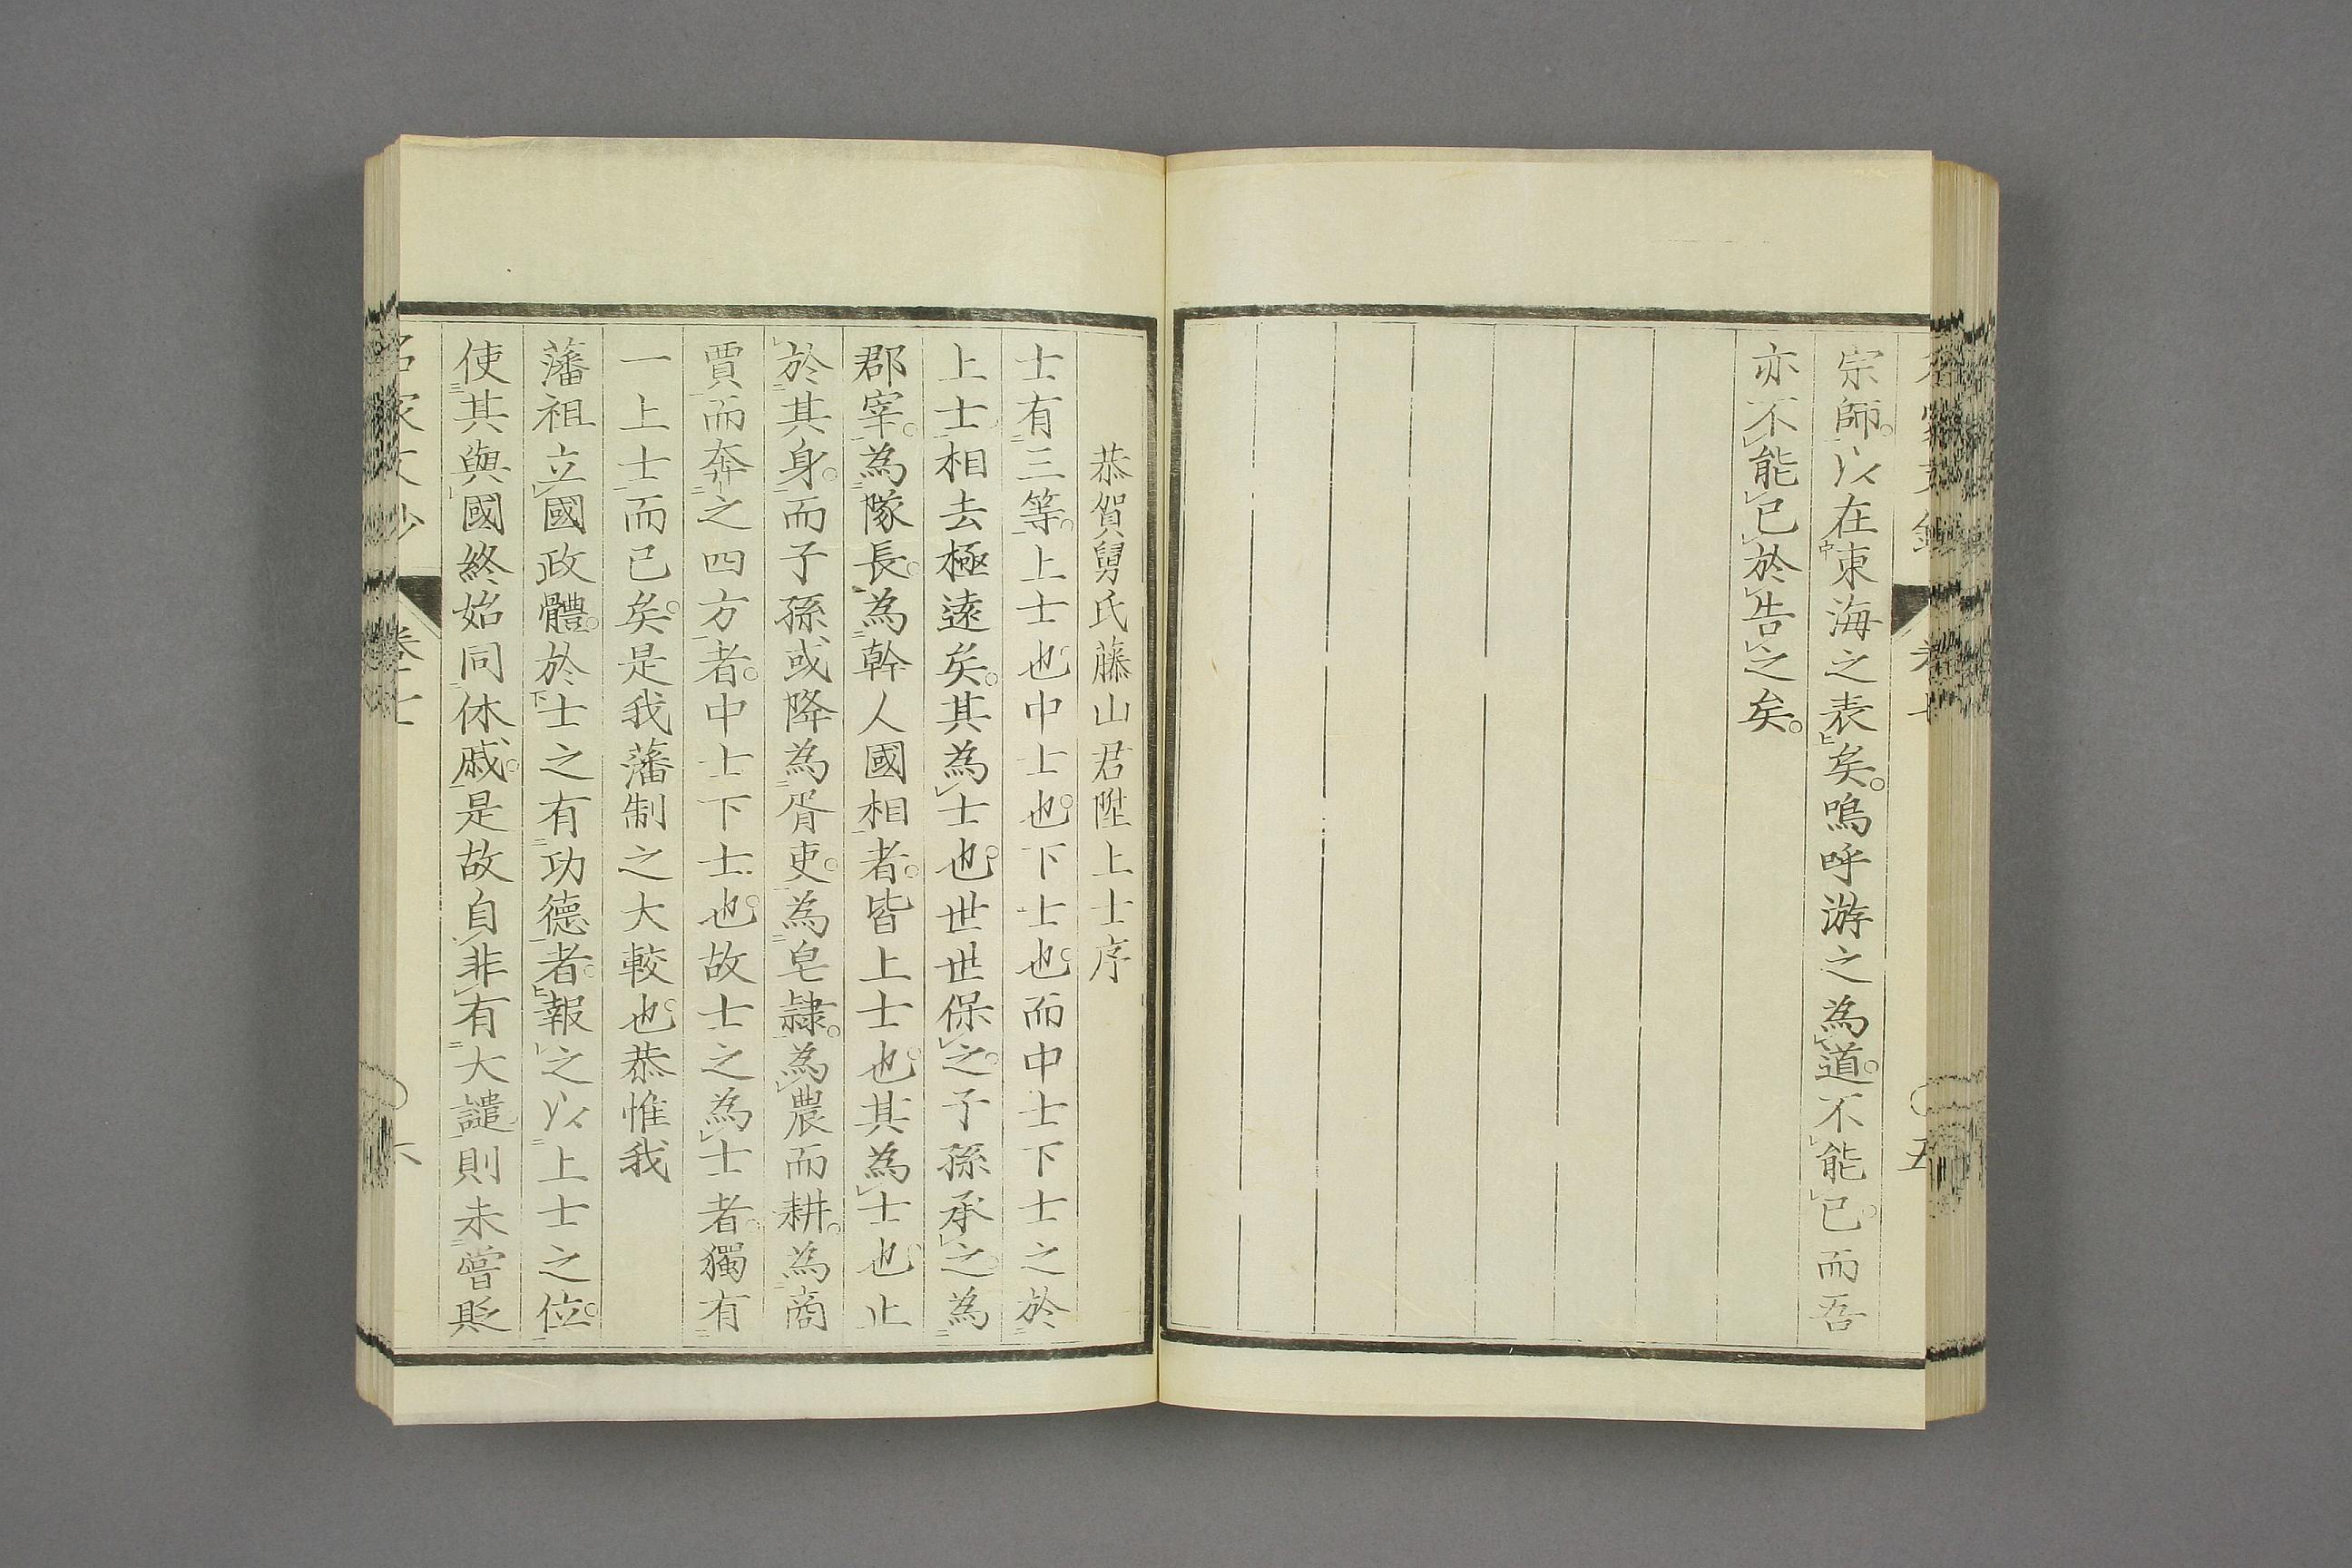 宗師。以在東海之表矣。嗚呼游之為道。不能已。而吾
亦不能已於告之矣。
恭賀舅氏藤山君陞上士序
士有三等。上士也。中士也。下士也。而中士下士之於
上士。相去極遠矣。其為士也。世世保之。子孫承之。為
郡宰。為隊長。為幹人國相者。皆上士也。其為士也。止
於其身。而子孫或降為胥吏。為皂隸。為農而耕。為商
賈而奔之四方者。中士下士也。故士之為士者。獨有
一上士而已矣。是我藩制之大較也。恭惟我
藩祖立國政體。於士之有功德者。報之以上士之位。
使其與國終始同休戚。是故自非有大譴則未嘗貶
名家文抄
卷十
六
五